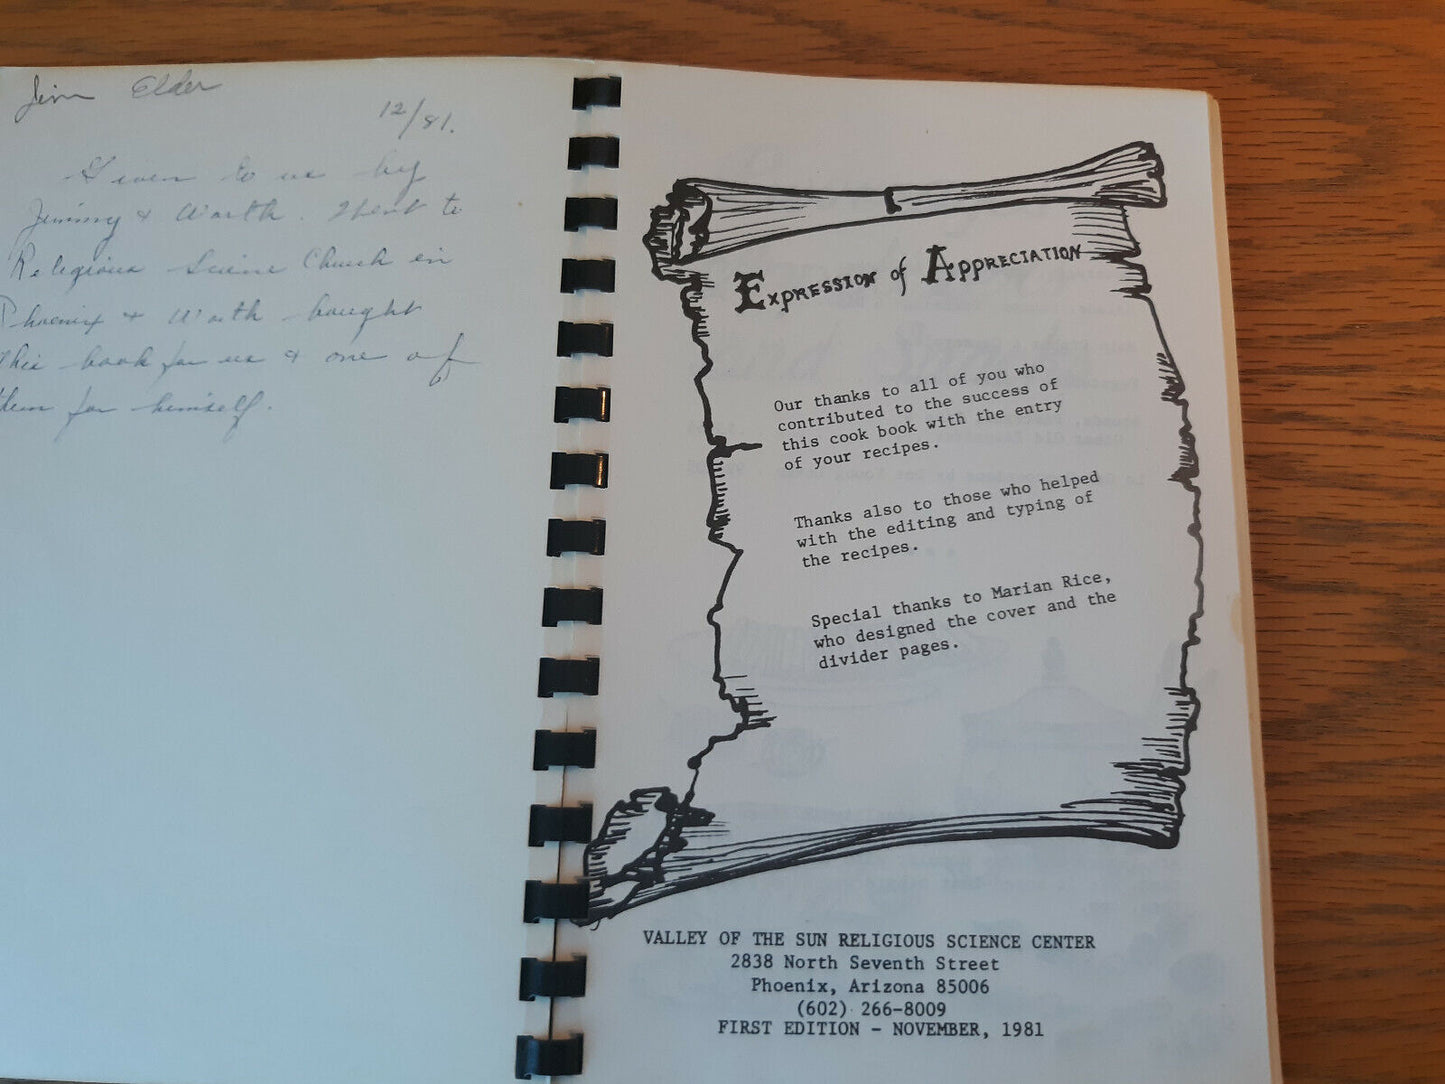 Jim Elder
12/81.
Given to us by
Jimmy & Worth. Went to
Religious Science Church in
Phoenix & Worth bought
this book for us & one of
them for himself.
Expression of Appreciation
Our thanks to all of you who
contributed to the success of
this cook book with the entry
of your recipes.
Thanks also to those who helped
with the editing and typing of
the recipes.
Special thanks to Marian Rice,
who designed the cover and the
divider pages.
VALLEY OF THE SUN RELIGIOUS SCIENCE CENTER
2838 North Seventh Street
Phoenix, Arizona 85006
(602) 266-8009
FIRST EDITION - NOVEMBER, 1981